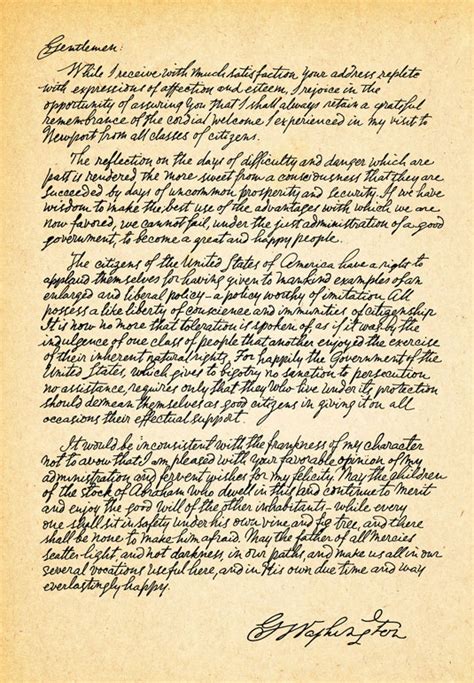 Gentlemen:
While I receive with much satisfaction your address replete
with expressions of affection and esteem, I rejoice in the
opportunity of assuring you that I shall always retain a grateful
remembrance of the cordial welcome I experienced in my visit to
Newport from all classes of citizens.
The reflection on the days of difficulty and danger which are
past is rendered the more sweet from a consciousness that they are
succeeded by days of uncommon prosperity and security. If we have
wisdom to make the best use of the advantages with which we are
now favored, we cannot fail, under the just administration of a good
government, to become a great and happy people.
The citizens of the United States of America have a right to
applaud themselves for having given to mankind examples of an
enlarged and liberal policy—a policy worthy of imitation. All
possess a like liberty of conscience and immunities of citizenship
It is now no more that toleration is spoken of as if it was by the
indulgence of one class of people that another enjoyed the exercise
of their inherent natural rights. For happily the Government of the
United States, which gives to bigotry no sanction to persecution
no assistance, requires only that they who live under its protection
should demean themselves as good citizens in giving it on all
occasions their effectual support.
It would be inconsistent with the frankness of my character
not to avow that I am pleased with your favorable opinion of my
administration and fervent wishes for my felicity. May the children
of the stock of Abraham who dwell in this land continue to merit
and enjoy the good will of the other inhabitants—while every
one shall sit in safety under his own vine and fig tree, and there
shall be none to make him afraid. May the father of all mercies
scatter light and not darkness in our paths, and make us all in our
several vocations useful here, and in His own due time and way
everlastingly happy.
G Washington